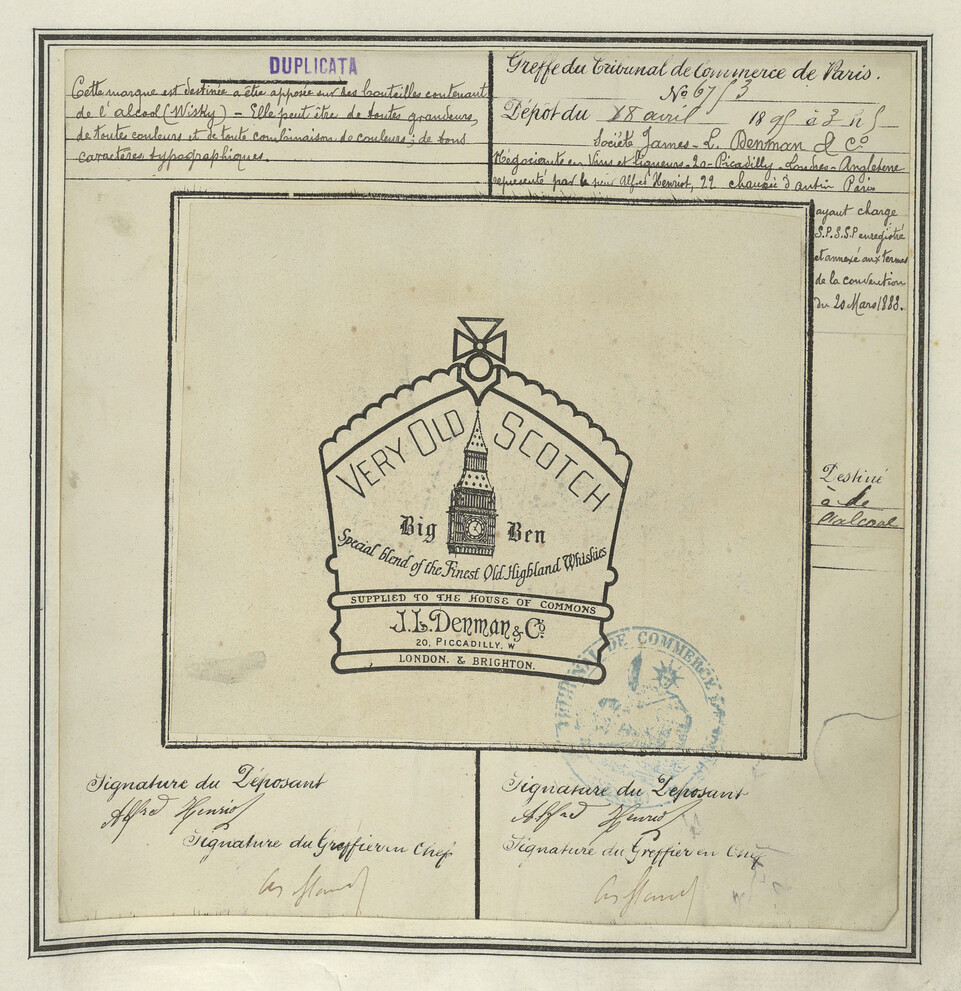 DUPLICATA
Cette marque est destinée à être apposée sur des bouteilles contenant
de l'alcool (Wisky) – Elle peut être de toutes grandeurs,
de toutes couleurs et de toute combinaison de couleurs; de tous
caractères typographiques.
Greffe du Tribunal de Commerce de Paris.
No 6753
Dépôt du 18 avril 1895 à 3 h 5
Société James-L. Denman & Co
Négociants en Vins et liqueurs-20-Picadilly-Londres-Angleterre
représenté par le sieur Alfred Henriot, 22 chausée d'antin Paris
ayant charge
S.P.S.S.P enregistré
et annexé aux termes
de la convention
du 20 Mars 1883.
VERY OLD SCOTCH
Big Ben
Special blend of the Finest Old Highland Whiskies
SUPPLIED TO THE HOUSE OF COMMONS
J.L. Denman & Co.
20, PICCADILLY, W
LONDON. & BRIGHTON.
Destiné
à de
l'alcool
TRIBUNAL DE COMMERCE
Signature du Déposant
Alfred Henriot
Signature du Greffier en Chef
Signature du Déposant
Alfred Henriot
Signature du Greffier en Chef